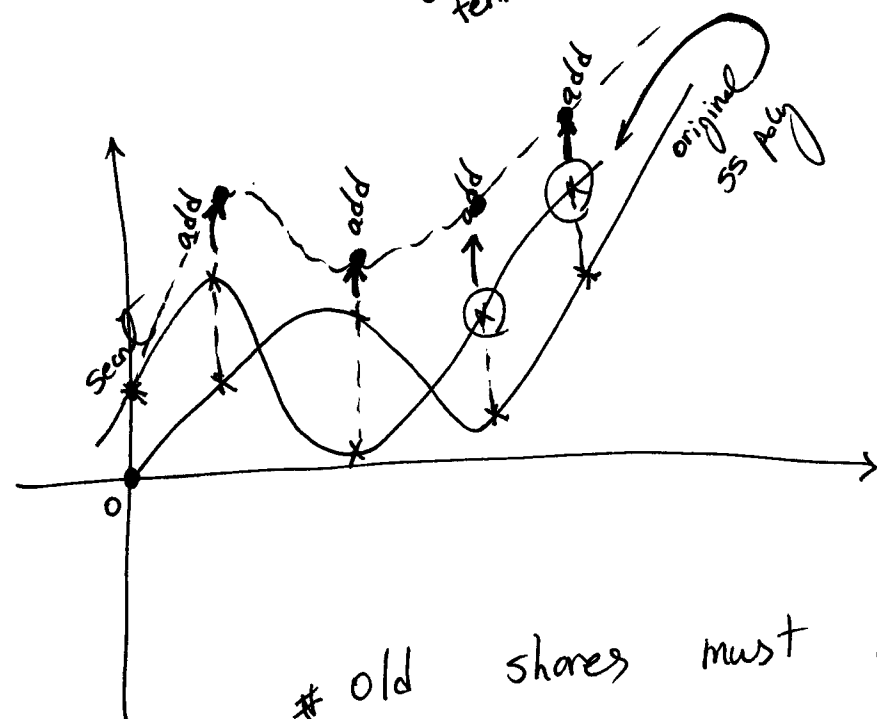 add
original
ss poly
add
add
add
secret
0
# Old shares must